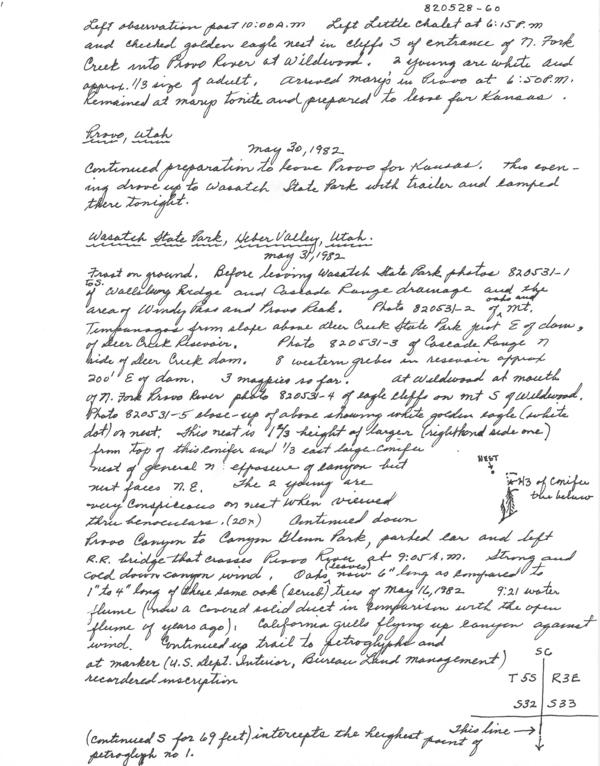 820528-60
Left observation post 10:00 A.M Left Little Chalet at 6:15 P.M
and checked golden eagle nest in cliffs S of entrance of N. Fork
Creek into Provo River at Wildwood. 2 young are white and
approx. 1/3 size of adult. Arrived Mary's in Provo at 6:50 P.M.
Remained at Marys tonite and prepared to leave for Kansas.
Provo, Utah
May 30, 1982
Continued preparation to leave Provo for Kansas. This even-
ing drove up to Wasatch State Park with trailer and camped
there tonight.
Wasatch State Park, Heber Valley, Utah.
May 31, 1982
Frost on ground. Before leaving Wasatch State Park, photos 820531-1
to S.
of Wallsburg Ridge and Cascade Range drainage and the
area of Windy Pass and Provo Peak. Photo 820531-2 of Mt.
oaks and
Timpanogos from slope above Deer Creek State Park just E of dam,
of Deer Creek Resevoir. Photo 820531-3 of Cascade Range N
side of Deer Creek dam. 8 western grebes in resevoir approx
200' E of dam. 3 magpies so far. At Wildwood at mouth
of N. Fork Provo River photo 820531-4 of eagle cliffs on mt S of Wildwood.
Photo 820531-5 close-up of above showing white golden eagle (white
dot) on nest. This nest is 1 2/3 height of larger (righthand side one)
from top of this conifer and 1/3 east large conifer
nest of general N exposure of canyon but
nest faces N.E. The 2 young are
very conspicious on nest when viewed
thru benoculars. (20x) Continued down
NEST
2/3 of Conifer
tree below
Provo Canyon to Canyon Glenn Park, parked car and left
R.R. bridge that crosses Provo River at 9:05 A.M. Strong and
cold down canyon wind. Oaks (leaves) now 6" long as compared to
1" to 4" long of these same oak (scrub) trees of May 16, 1982 9:21 water
flume (now a covered solid duct in comparison with the open
flume of years ago). California gulls flying up canyon against
wind. Continued up trail to petroglyphs and
at marker (U.S. Dept. Interior, Bureau Land Management)
recordered inscription
SC
T5S R3E
S32 S33
This line
(continued S for 69 feet) intercepts the heighest point of
petroglyph no 1.